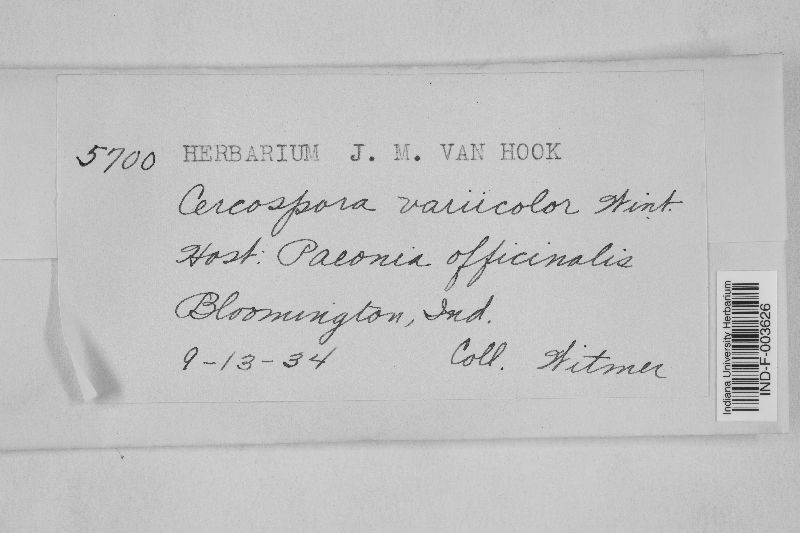 5700 HERBARIUM J. M. VAN HOOK
Cercospora variicolor Wint.
Host: Paeonia officinalis
Bloomington, Ind.
9-13-34 Coll. Witmer
Indiana University Herbarium
IND-F-003626